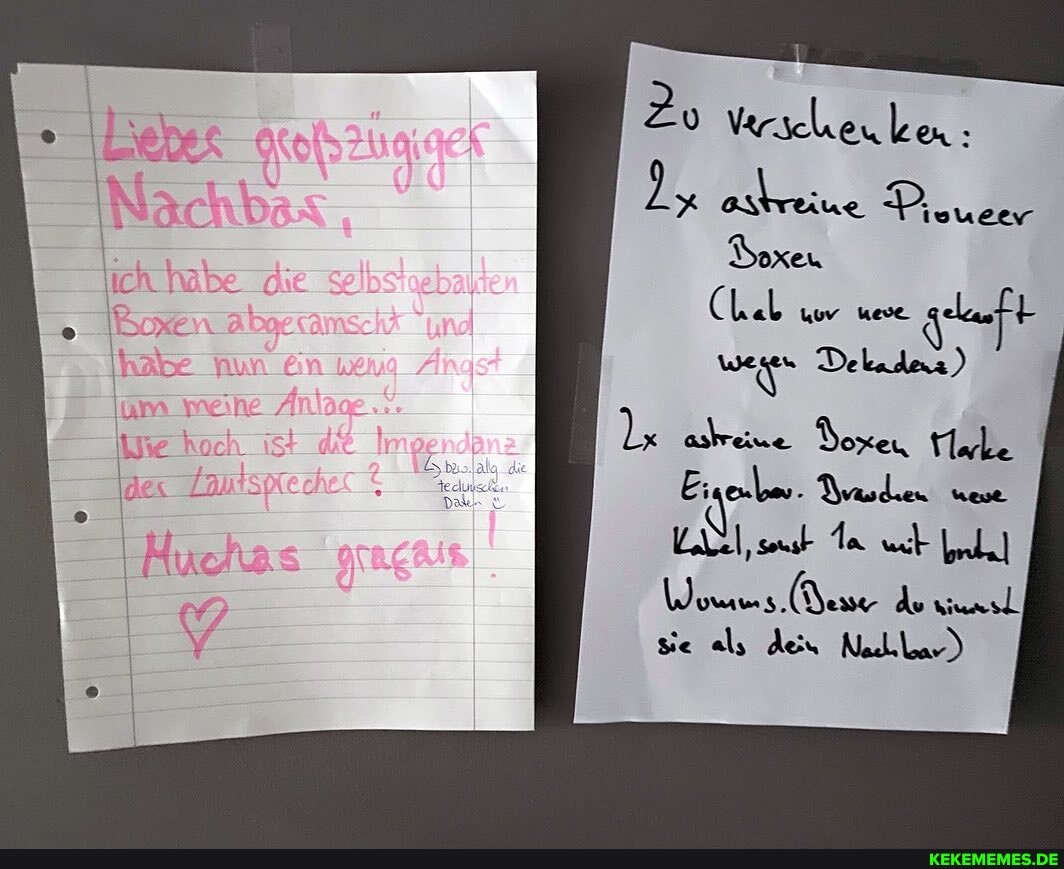 Lieber großzügiger
Nachbar,
ich habe die selbstgebauten
Boxen abgeramscht und
habe nun ein wenig Angst
um meine Anlage...
Wie hoch ist die Impendanz
der Lautsprecher?
↳ bzw. allg die
technischen
Daten ü
Muchas graçais!
♡
Zu verschenken:
2x astreine Pioneer
Boxen
(hab nur neue gekauft
wegen Dekadenz)
2x astreine Boxen Marke
Eigenbau. Brauchen neue
Kabel, sonst 1a mit brutal
Wumms. (Besser du nimmst
sie als dein Nachbar)
KEKEMEMES.DE